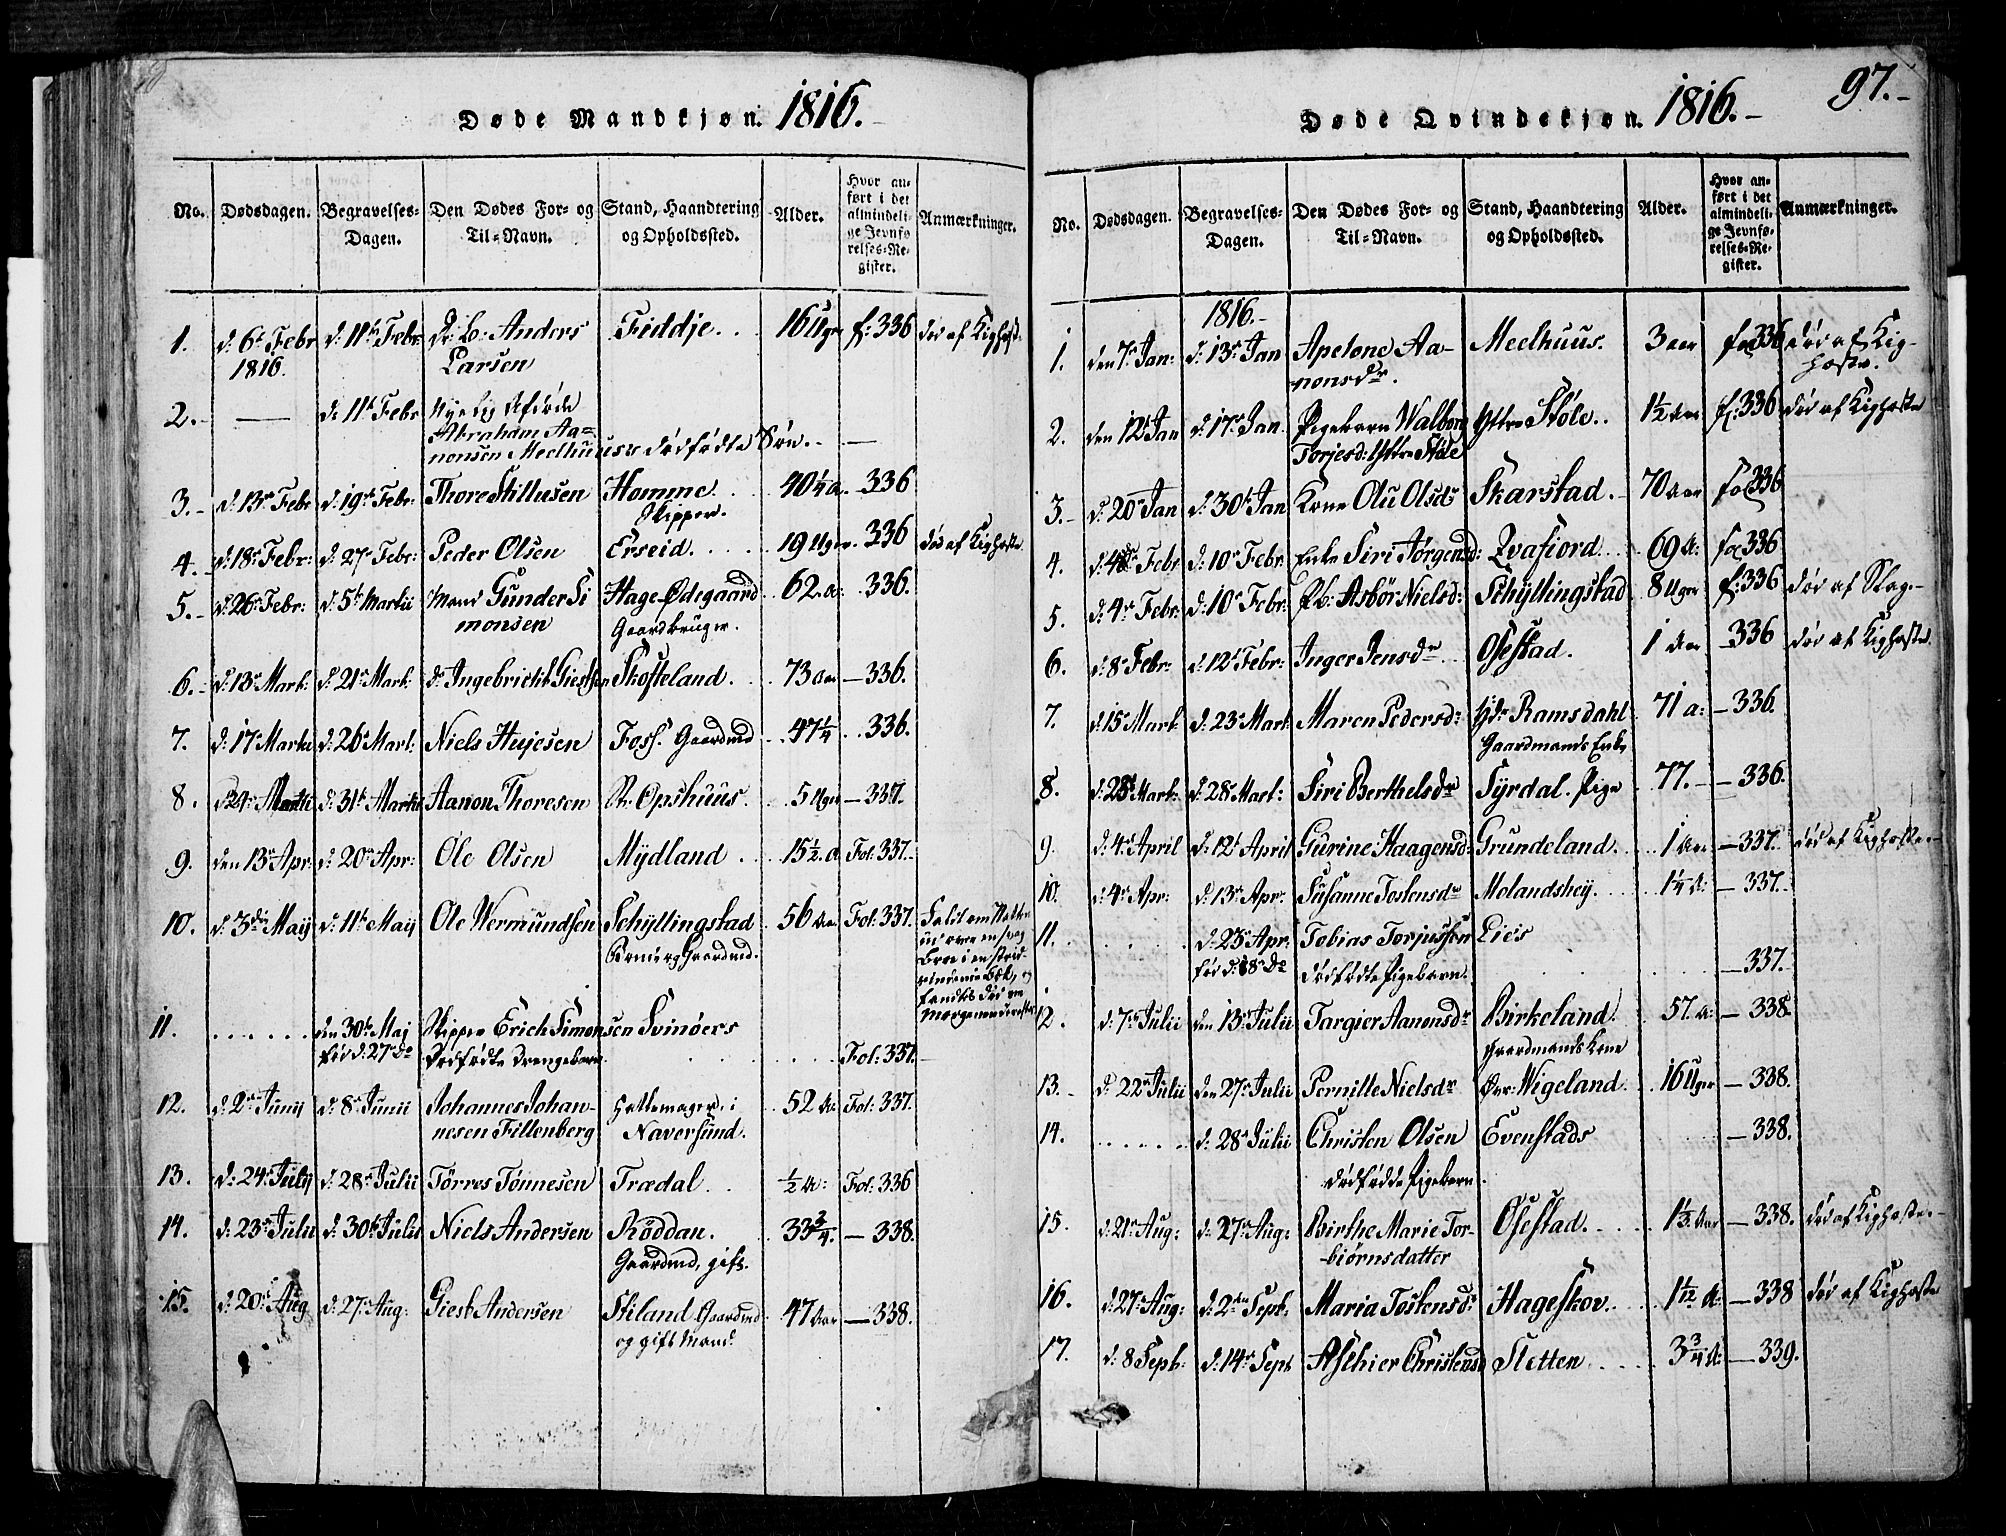 Døde Mandkjøn. 1816.
No. Dødsdagen. Begravelses-Dagen. Den Dødes For- og Til-Navn. Stand, Haandtering og Opholdssted. Alder. Hvor anført i det almindelige Jevnførelses-Register. Anmærkninger.
1. d: 6te Febr 1816. d: 11te Febr Dr: b: Anders Larsen Fiddje. 16 Uger f: 336 død af Kighoste
2. — d: 11te Febr
Abraham Aanonsen Meelhuus dødfødte Søn. —
3. d: 13de Febr d: 19de Febr: Thore Stillusen Homme. Skipper. 40 1/4 a. 336
4. d: 18de Febr: d: 27de Febr: Peder Olsen Erseid. 19 Uger 336 død af Kighoste
5. d: 26de Febr: d: 5te Martii Mand Gunder Simonsen Hage-Ødegaard Gaardbruger. 62 a: 336.
6. d: 13de Mart: d: 21de Mart: do Ingebricht Skofteland. 73 Aar — 336.
7. d: 17de Martii d: 26de Mart: Niels Foss. Gaardmd 47 1/4 336.
8. d: 24de Martii d: 31te Martii Aanon Thoresen Opshuus. 5 Uger — 337.
9. den 13de Apr: d: 20de Apr: Ole Olsen Mydland 15 1/2 a Fol: 337.
10. d: 3die Maij d: 11te Maij Ole Wermundsen Schyllingstad Gaardmd. 56 Aar Fol: 337.
11. den 30te Maj død d: 27de do Skipper Erich Simonsen Svinøers dødfødte Drengebarn Fol: 337.
12. d: 2den Junij d: 8de Junii Johannes Johannesen Fillenberg Hattemager i Naversund. 52 Aar Fol: 337.
13. d: 24de Julij d: 28de Julii Tørres Tønnesen Trædal. 1/2 A: Fol: 336
14. d: 23de Julii d: 30te Julii Niels Andersen Røddan. Gaardmd, gift. 33 3/4. — 338.
15. d: 20de Aug d: 27de Aug: Giest Andersen Stiland Gaardmd og gift Mand. 47 Aar — 338.
Døde Qvindekjøn. 1816. 97.
No. Dødsdagen. Begravelses-Dagen. Den Dødes For- og Til-Navn. Stand, Haandtering og Opholdssted. Alder. Hvor anført i det almindelige Jevnførelses-Register. Anmærkninger.
1816.
1. den 7de Jan: d: 13de Jan Apelone Aanonsdr. Meelhuus. 3 aar fol 336 død af Kighoste.
2. den 12te Jan d: 17de Jan. Pigebarn Walborg Torjesd: Yttre Støle Yttre Støle. 1 1/2 Aar f: 336 død af Kighoste
3. d: 20de Jan d: 30te Jan Kone Olu Olsdr Skarstad. 70 Aar fol 336
4. d: 4de Febr d: 10de Febr: Enke Siri Jørgensd: Qvafiord. 69 A: fol 336
5. d: 4de Febr: d: 10de Febr: Pb: Asbør Nielsd: Schyllingstad 8 Uger f: 336 død af Slag.
6. d: 8de Febr: d: 12te Febr: Inger Jensdr Osestad. 1 Aar 336 død af Kighoste
7. d: 15de Mart d: 23de Mart Maren Pedersd: Ramsdahl Gaardmands Enke 71 a: — 336.
8. d: 28de Mart: d: 28de Mart: Siri Berthelsdr Syrdal. Pige 77. — 336.
9. d: 4de April d: 12te April Gurine Haagensd: Grundeland. 1 Aar — 337. død af Kighoste
10. d: 4de Apr: d: 13de Apr: Susanne Tostensdr Molandshej. 1 1/4 A: — 337.
11. d: 23de Apr: død d: 18de do Tobias Torjussen Lies dødfødte Pigebarn. — 337.
12. d: 7de Julii den 13de Julii Targier Aanonsdr Birkeland. Gaardmands Kone 57. a: — 338
13. d: 22de Julii den 27de Julii Pernille Nielsdr Øvr: Wigeland. 16 Uger — 338.
14. d: 28de Julii Christen Olsen Evenstads dødfødde Pigebarn — 338.
15. d: 21de Aug: d: 27de Aug: Birthe Marie Torbiørnsdatter Osestad. 1 1/3 Aar — 338. død af Kighoste
16. d: 27de Aug: d: 2den Sept: Maria Tostensdr Hageskov. 1 1/12 A: — 338 død af Kighoste
17. d: 8 Sept: d: 14de Sept Aschier Christensd Sletten 3 3/4 A: — 339.